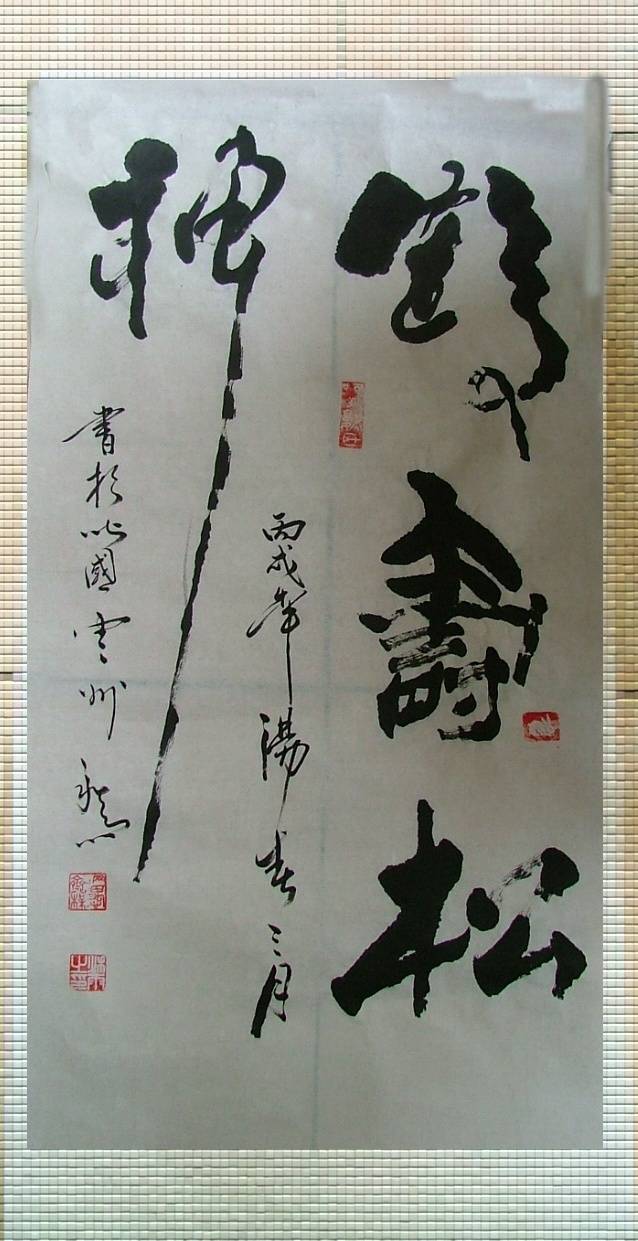 鶴壽松
神
丙戌年陽春三月
書於北國雲州